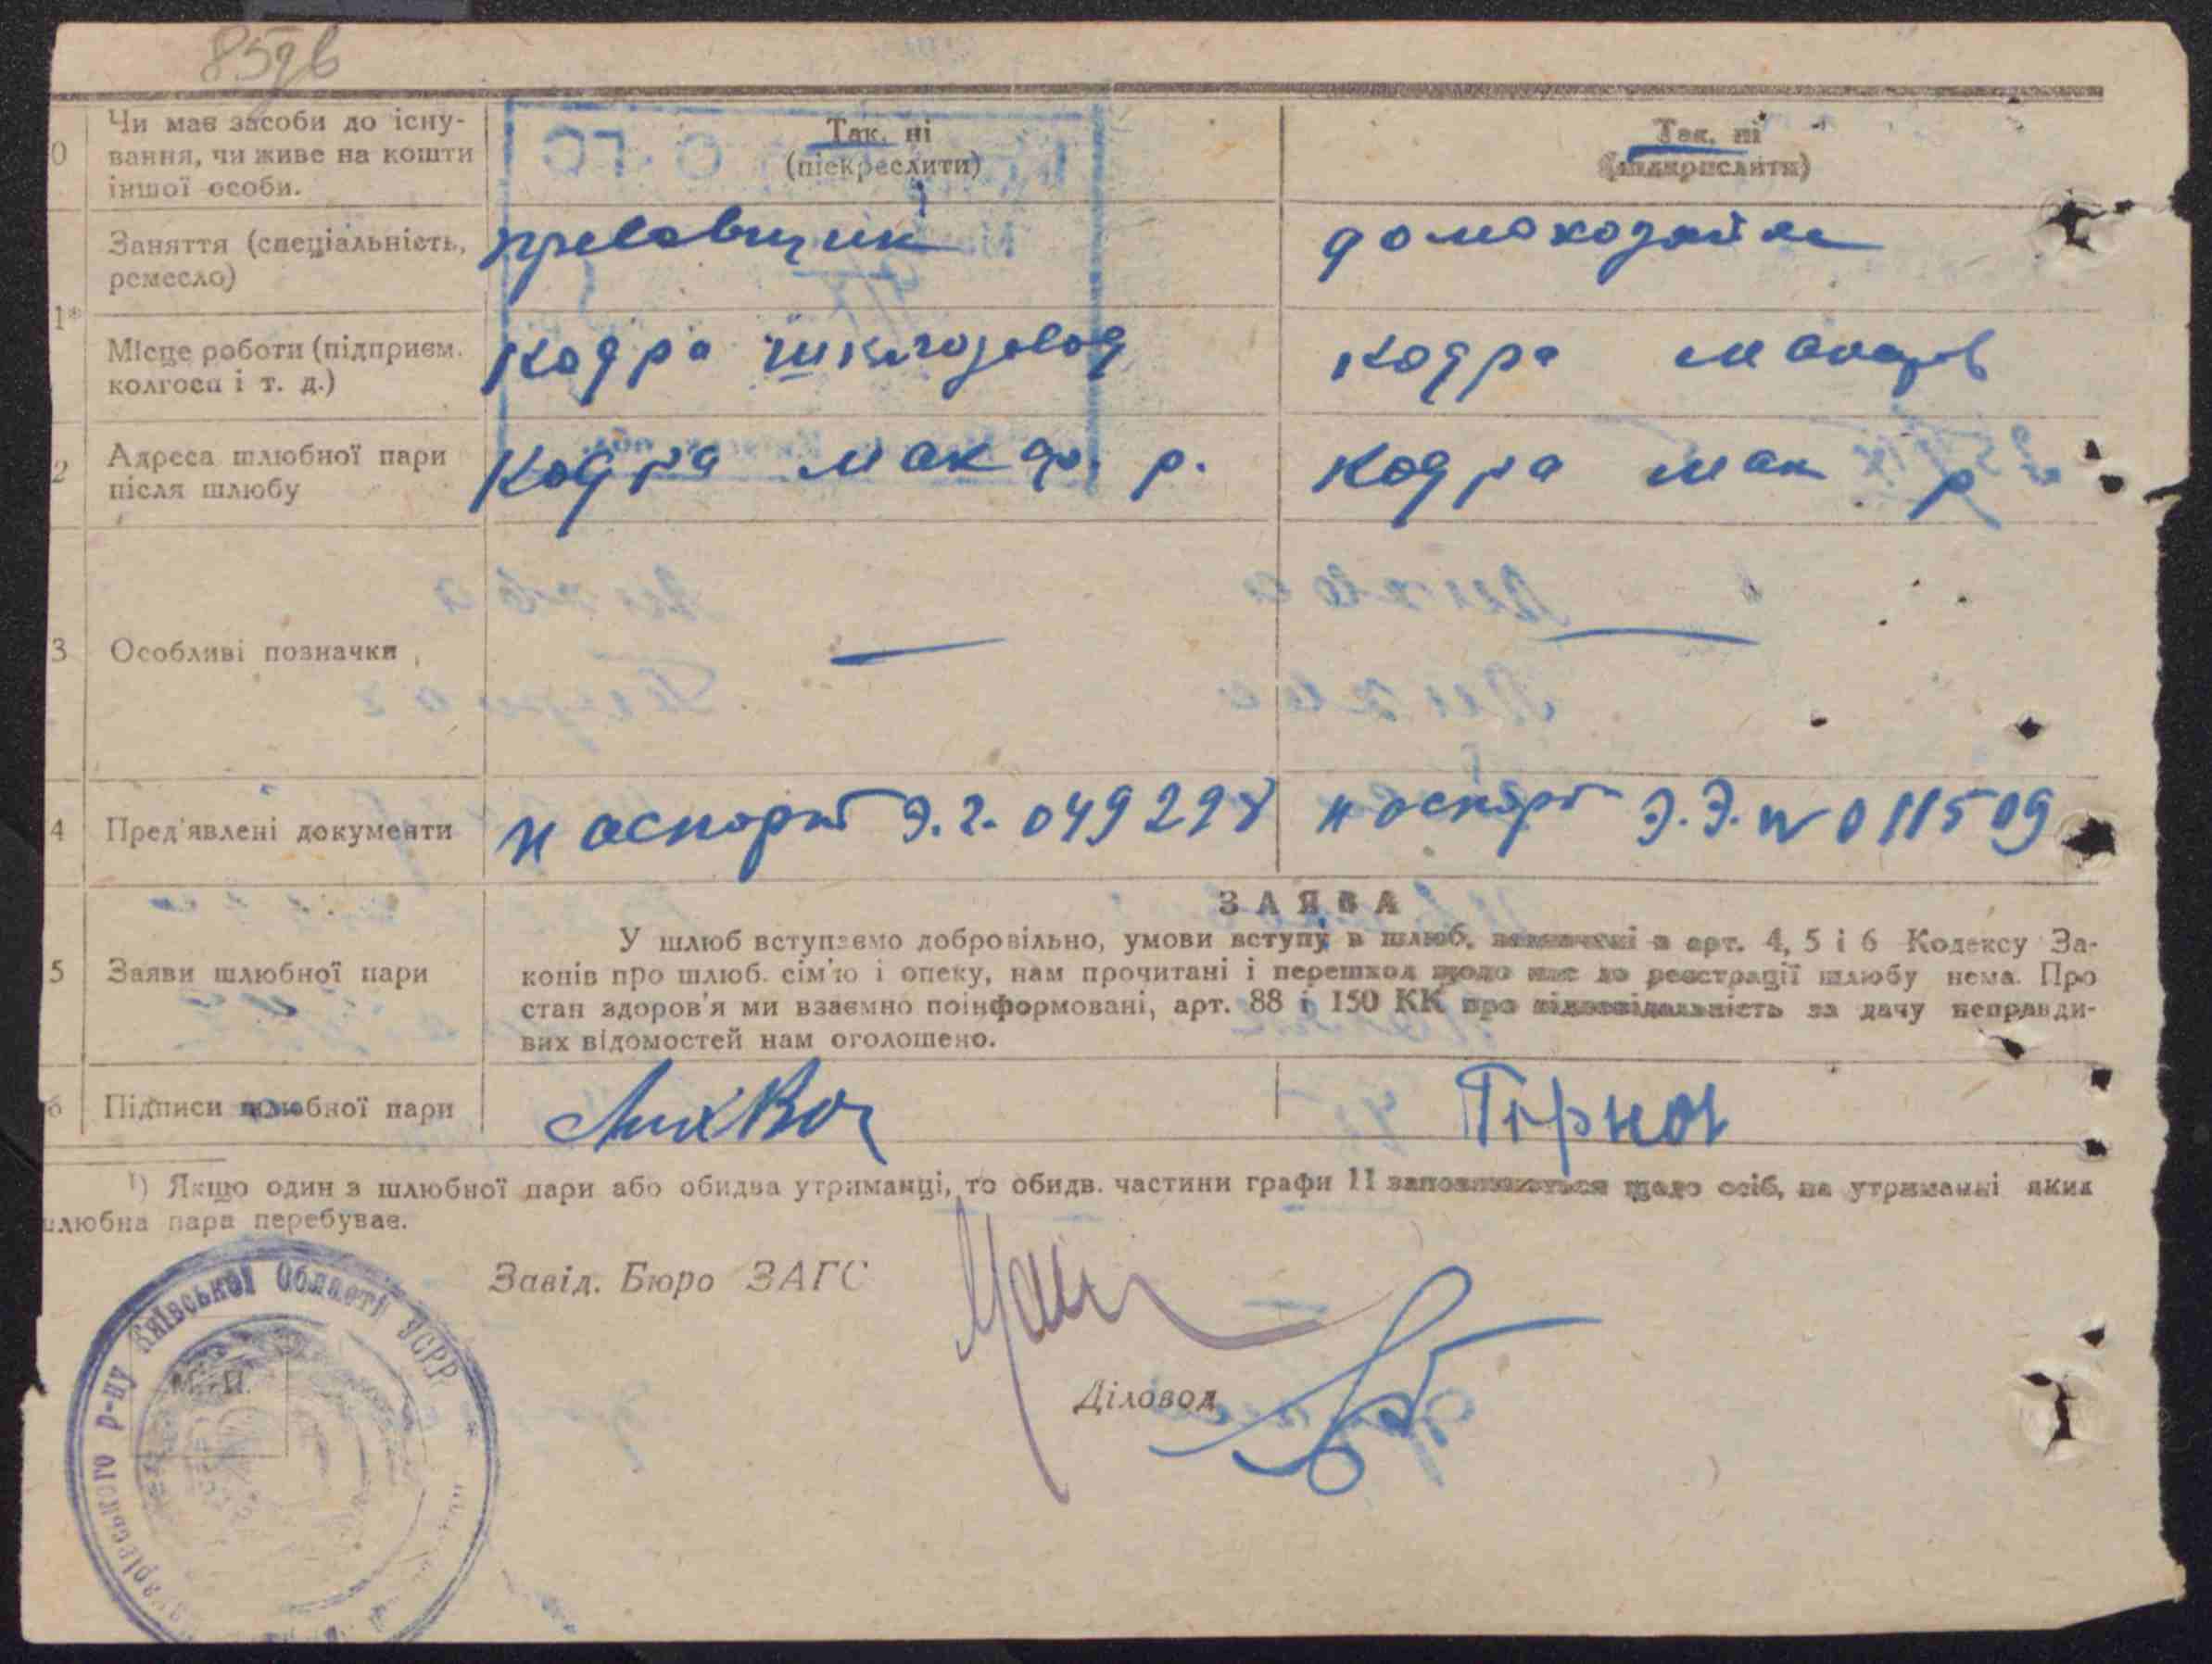 85зв
0 Чи має засоби до існу-
вання, чи живе на кошти
іншої особи.
Так, ні
(піскреслити)
Так, ні
Заняття (спеціальність,
ремесло)
пресовщик
домохозяйка
1*
Місце роботи (підприєм.
колгосп і т. д.)
Кодра шклозавод
кодра макарів
2 Адреса шлюбної пари
після шлюбу
Кодра мак р.
кодра мак р
3 Особливі позначки
—
—
4 Пред'явлені документи
паспорт Э.г. 049298
паспорт Э.Э. N 011509
5 Заяви шлюбної пари
ЗАЯВА
У шлюб вступаємо добровільно, умови вступу в шлюб, зазначені в арт. 4, 5 і 6 Кодексу За-
конів про шлюб. сім'ю і опеку, нам прочитані і перешкод щодо нас до реєстрації шлюбу нема. Про
стан здоров'я ми взаємно поінформовані, арт. 88 і 150 КК про відповідальність за дачу неправди-
вих відомостей нам оголошено.
6 Підписи шлюбної пари
1) Якщо один з шлюбної пари або обидва утриманці, то обидв. частини графи 11 заповнюються щодо осіб, на утриманні яких
шлюбна пара перебуває.
Завід. Бюро ЗАГС
Діловод
М. П.
р-ну Київської Області УСРР